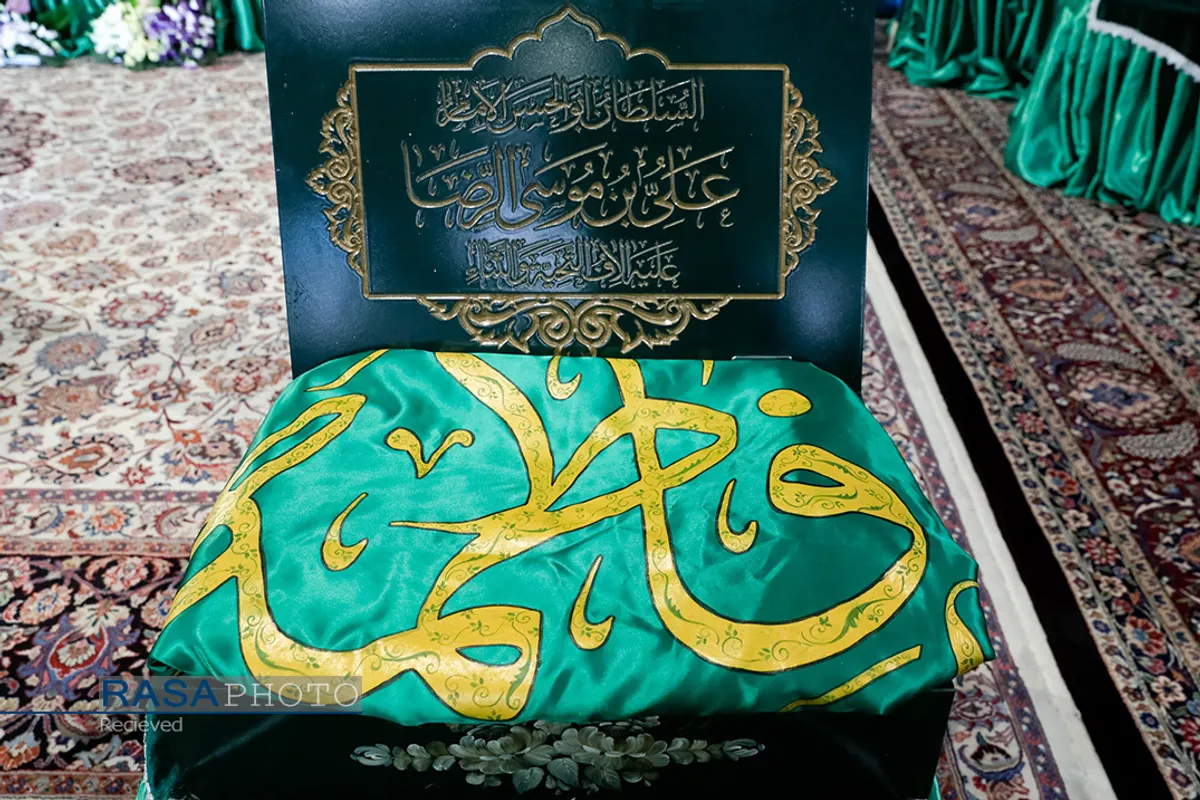 السُّلطان أبو الحسن الإمام
عَلَيِّ بْنِ مُوسَى الرِّضَا
عَلَيْهِ آلافُ التَّحِيَّةِ وَالثَّنَاءِ
فاطمة
RASAPHOTO
Recieved